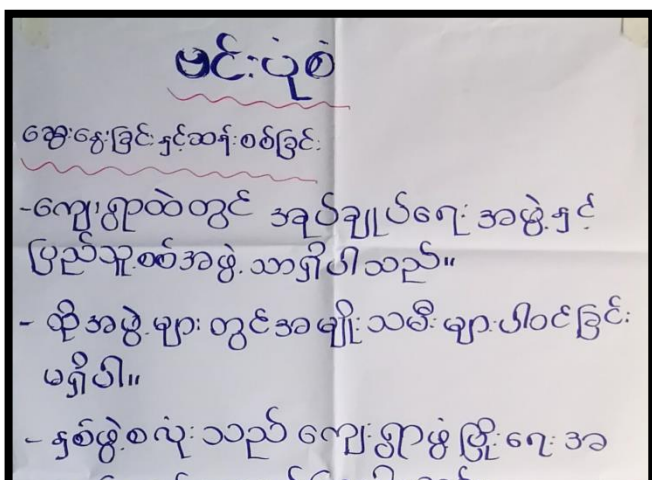 ဖင်းပုံစံ
ဆွေးနွေးခြင်းနှင့်ဆန်းစစ်ခြင်း
-ကျေးရွာထဲတွင် အုပ်ချုပ်ရေး အဖွဲ့နှင့်
ပြည်သူ့စစ်အဖွဲ့ သာရှိပါသည်။
- ထိုအဖွဲ့များ တွင်အမျိုးသမီးများပါဝင်ခြင်း
မရှိပါ။
- နှစ်ဖွဲ့စလုံးသည် ကျေးရွာဖွံ့ဖြိုးရေး အ